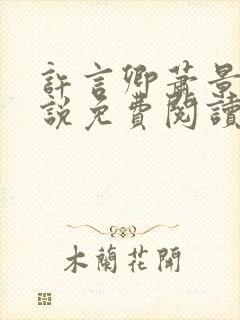 許言卿蕭景
說免費閱讀
木蘭花開